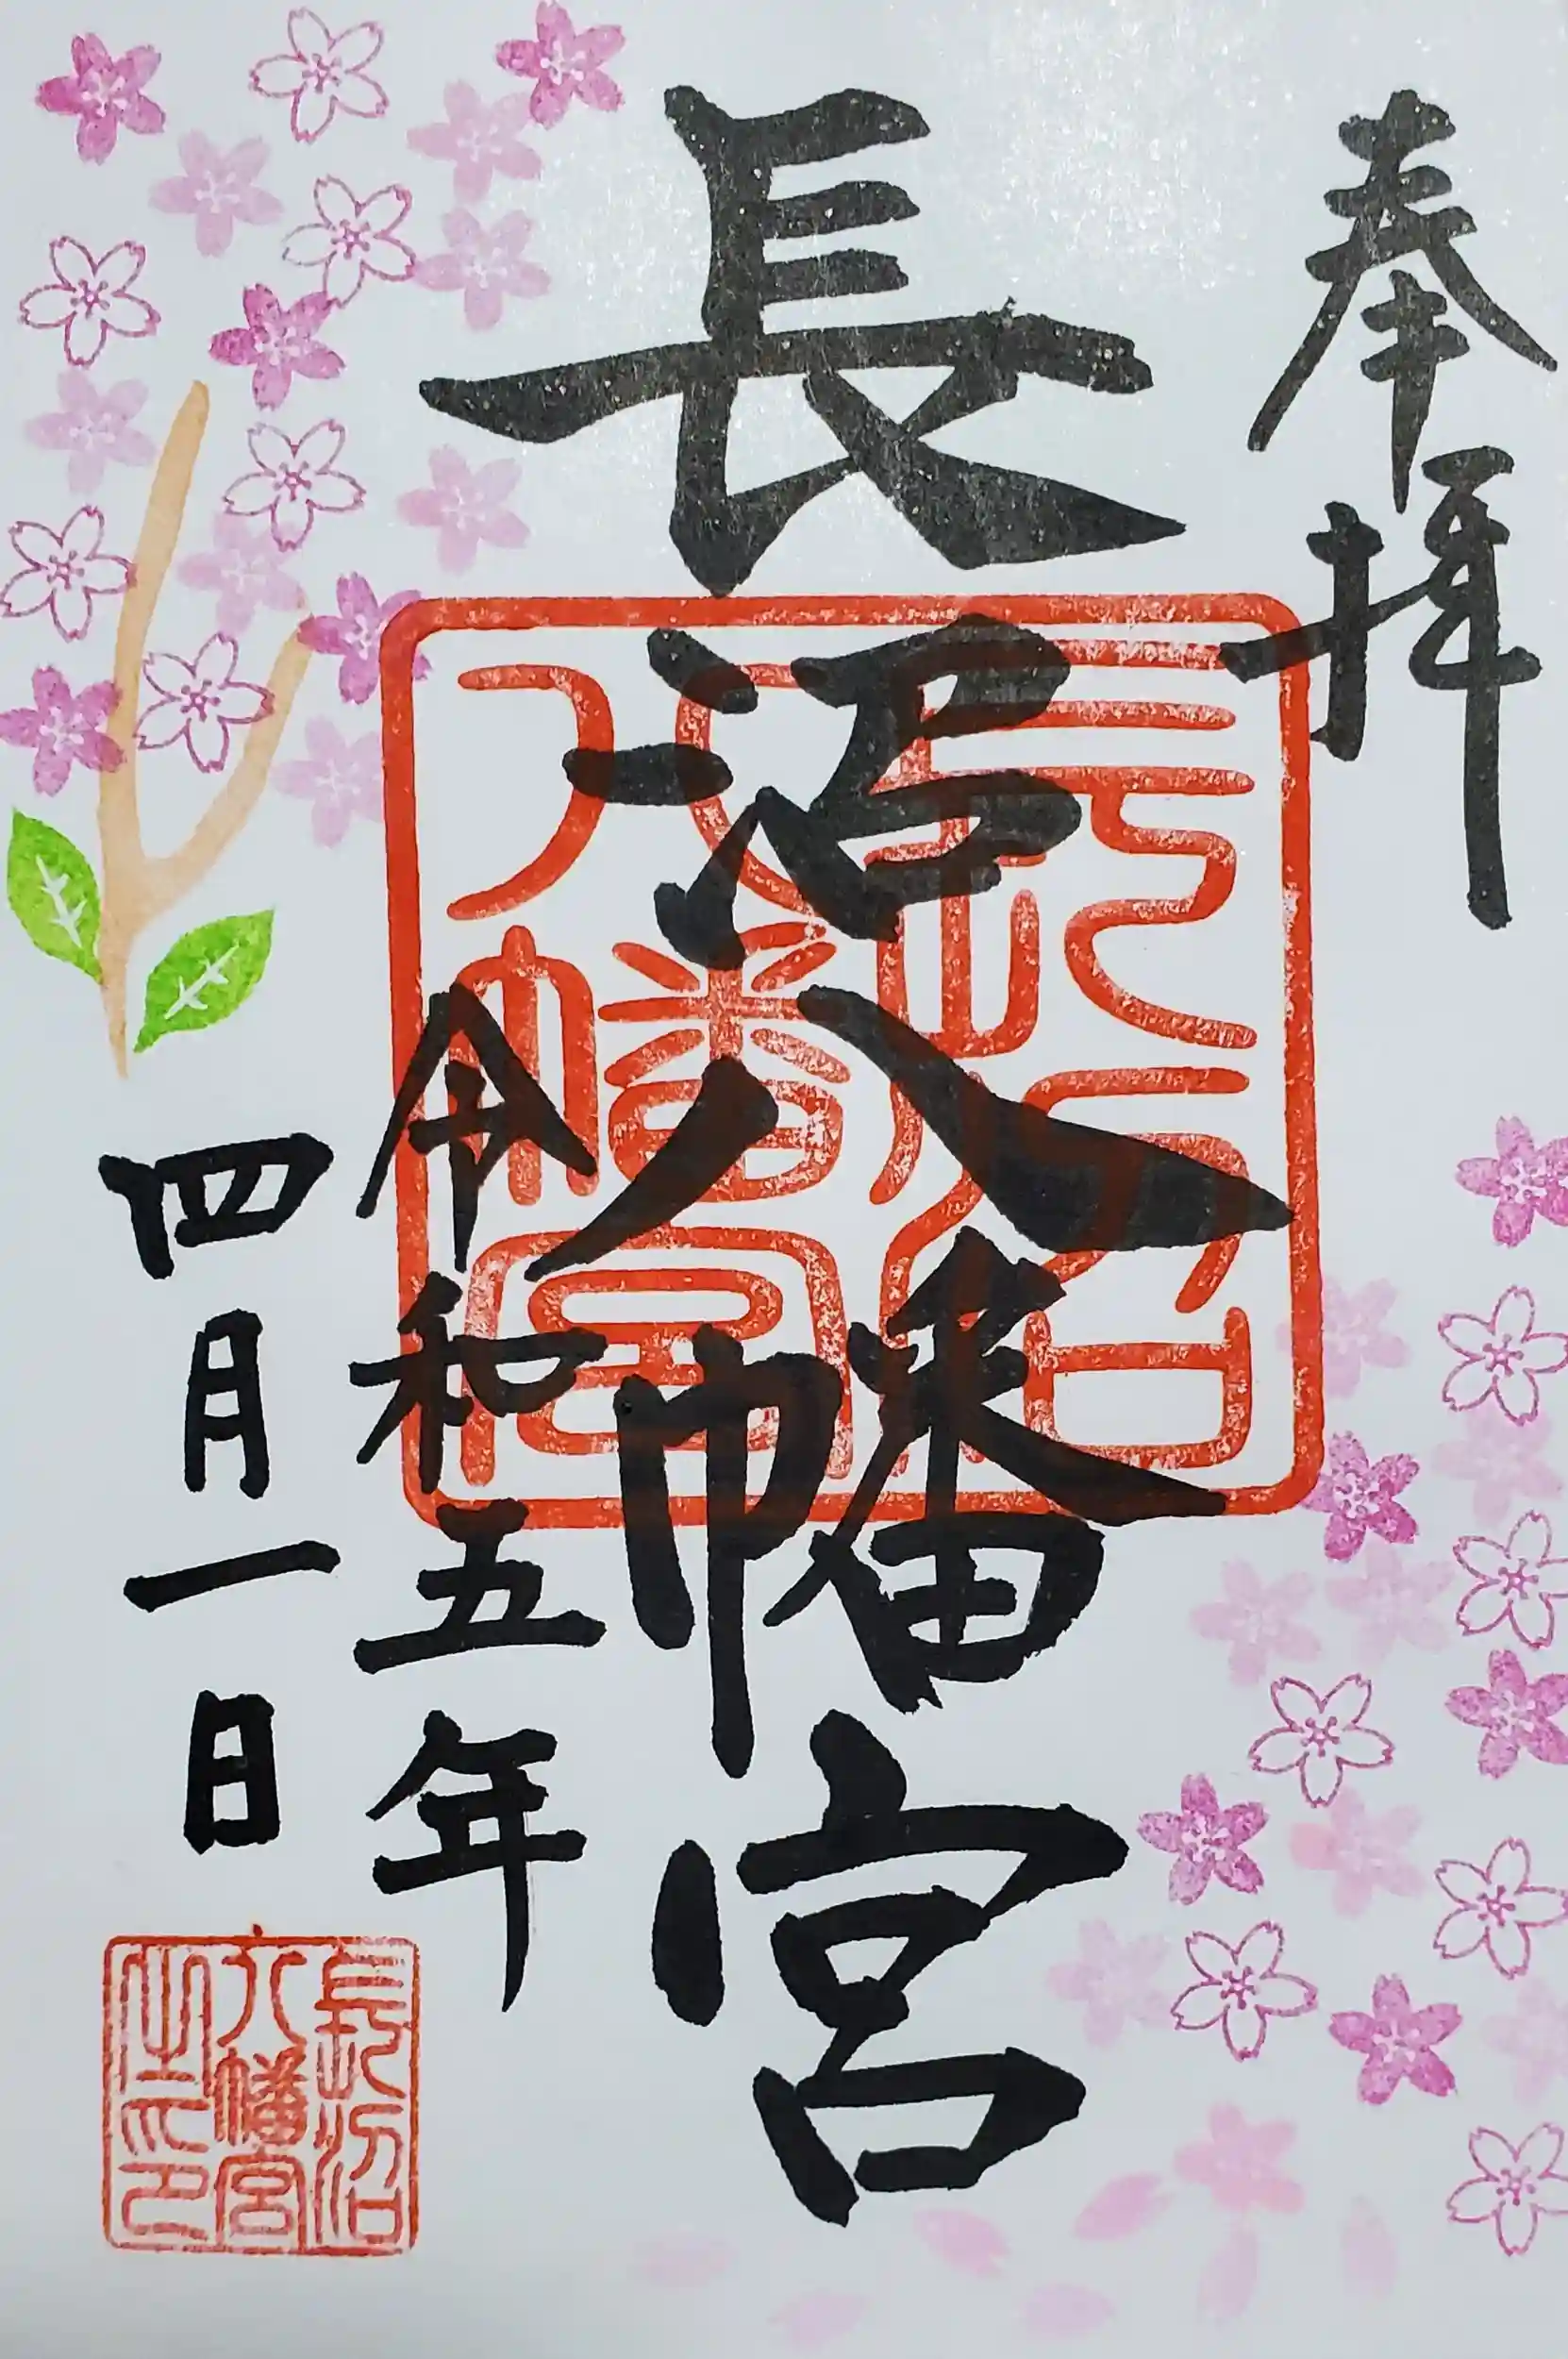 奉拝
長沼八幡宮
長沼八幡宮
令和五年
四月一日
長沼八幡宮之印